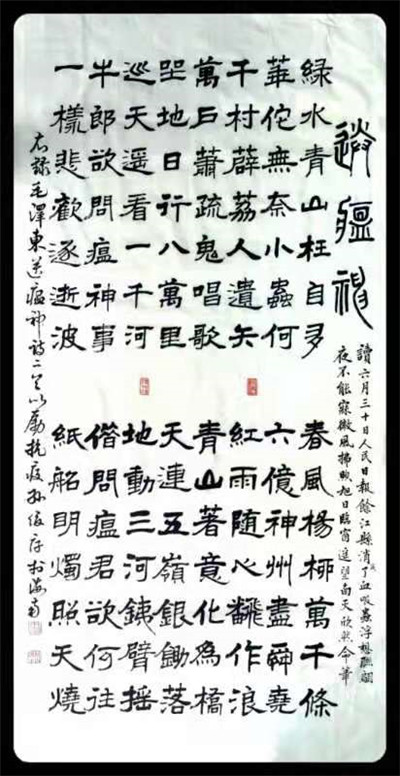 送瘟神
讀六月三十日人民日報餘江縣消滅了血吸蟲浮想聯翩
夜不能寐微風拂煦旭日臨窗遥望南天欣然命筆
綠水青山枉自多
華佗無奈小蟲何
千村薜荔人遺矢
萬戶蕭疏鬼唱歌
坐地日行八萬里
巡天遥看一千河
牛郎欲問瘟神事
一樣悲歡逐逝波
春風楊柳萬千條
六億神州盡舜堯
紅雨隨心飜作浪
青山著意化為橋
天連五嶺銀鋤落
地動三河鐵臂摇
借問瘟君欲何往
紙船明燭照天燒
右録毛澤東送瘟神詩二首以勵抗疫孫於海南